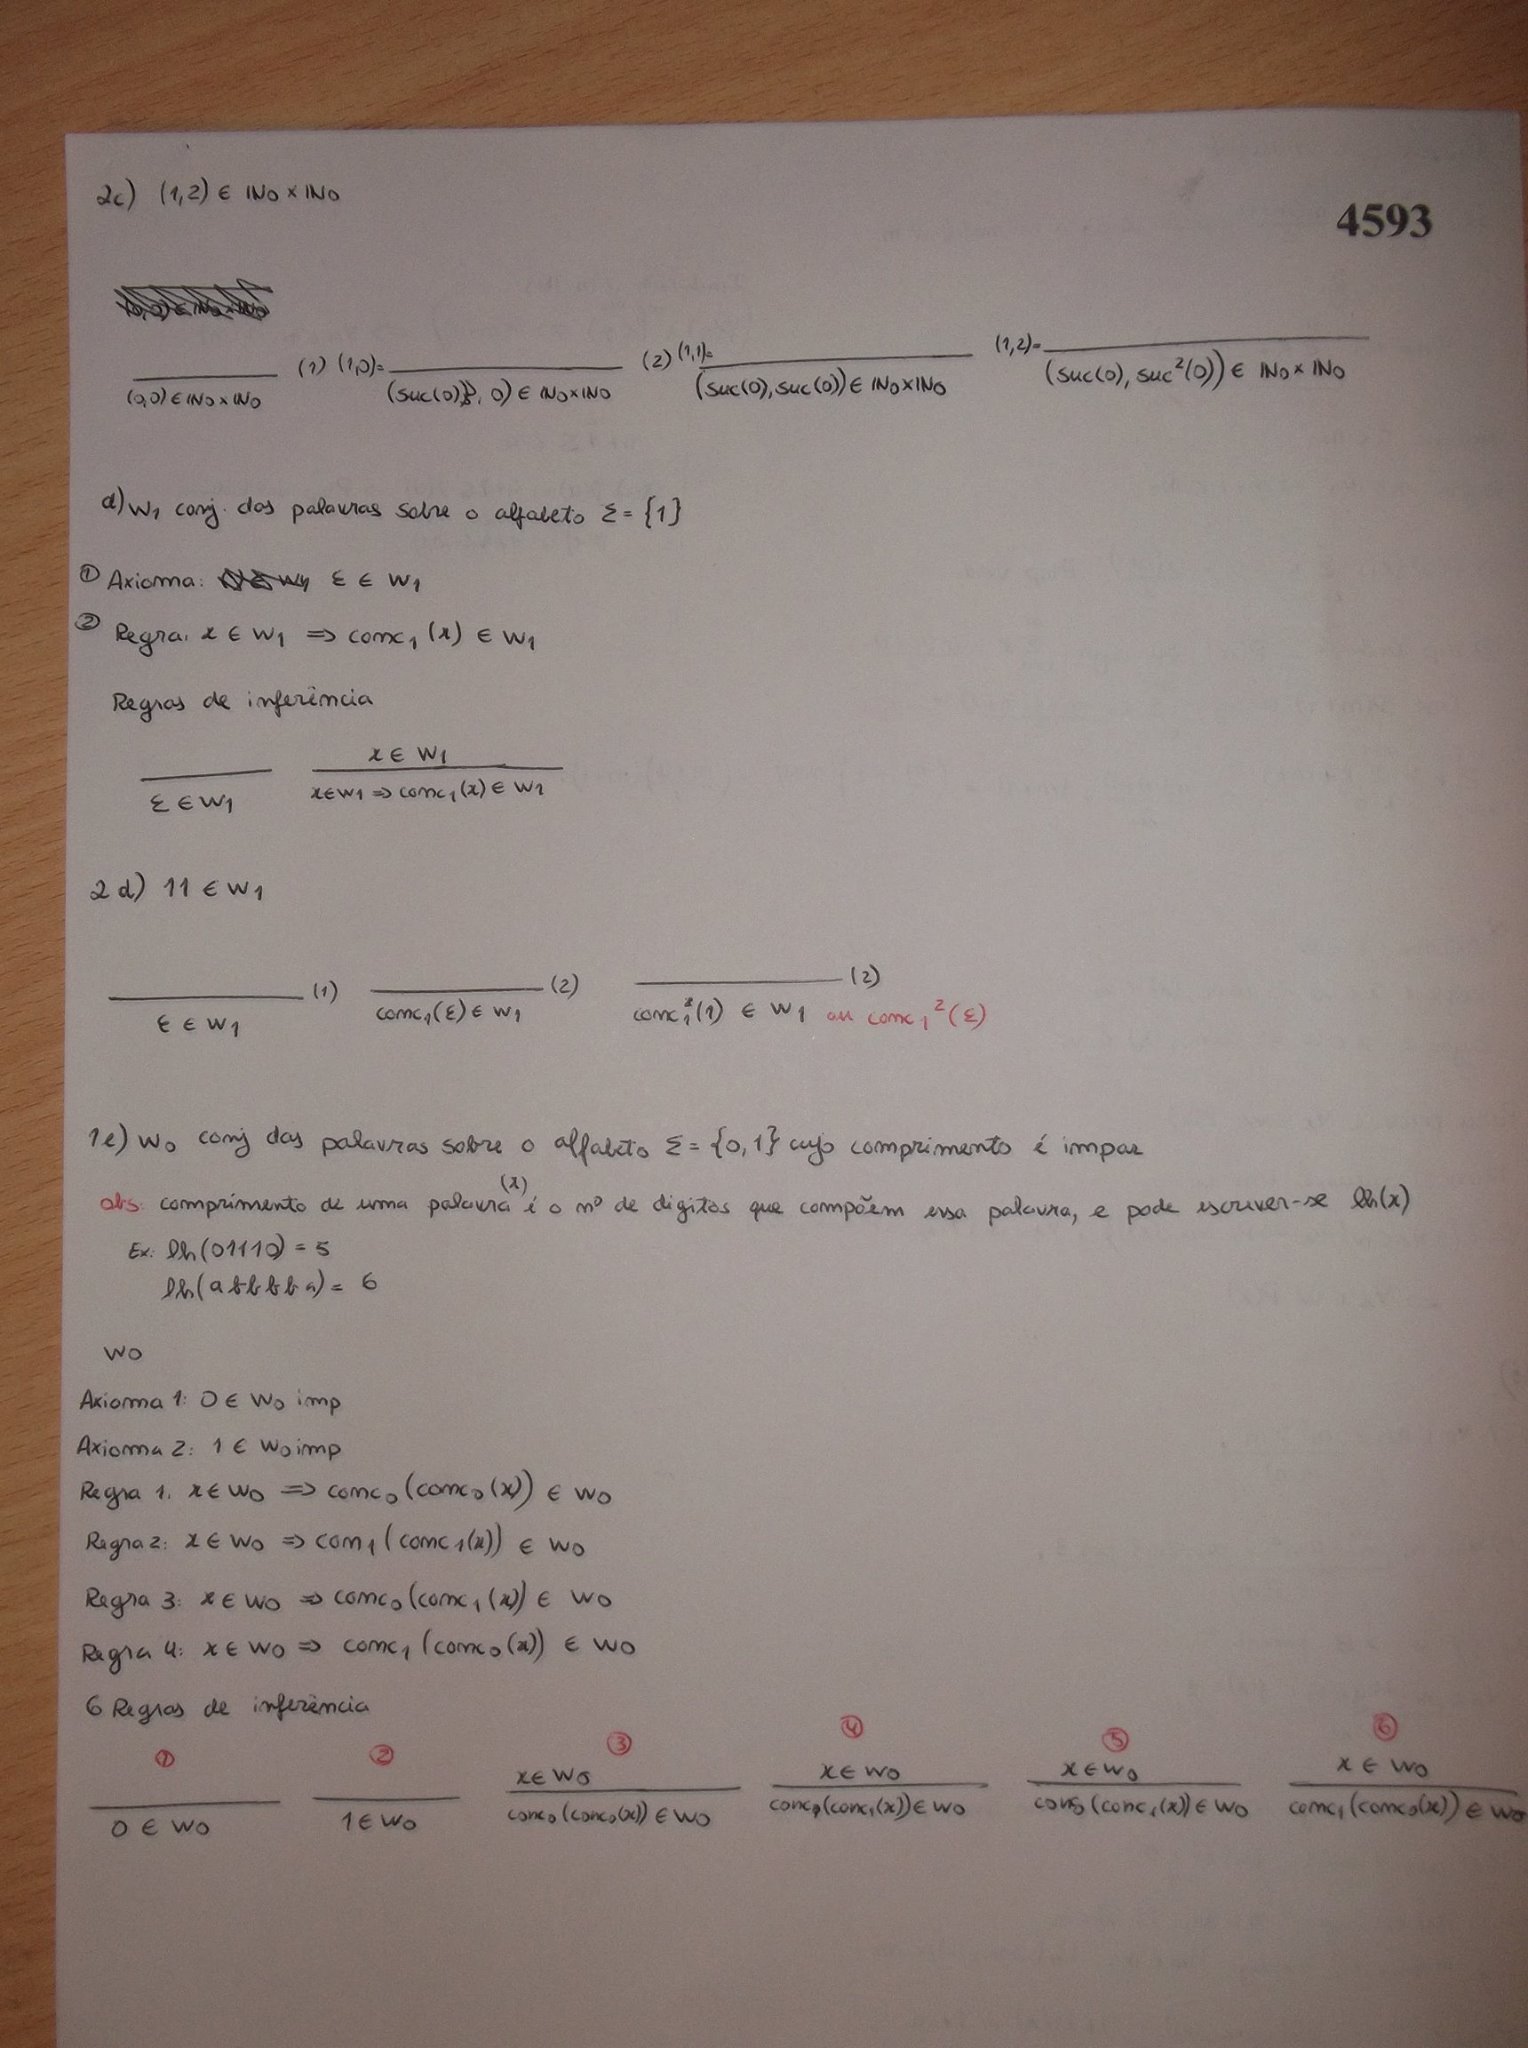 2c) (1,2) ∈ INo × INo
4593
(1) (1,0)= (2) (1,1)= (1,2)=
(0,0) ∈ INo × INo (suc(0), 0) ∈ INo×INo (suc(0), suc(0)) ∈ INo×INo (suc(0), suc²(0)) ∈ INo × INo
d) W1 conj. das palavras sobre o alfabeto Σ = {1}
① Axioma: Ɛ ∈ W1
② Regra: x ∈ W1 => conc1 (x) ∈ W1
Regras de inferência
x ∈ W1
Ɛ ∈ W1 x∈W1 => conc1(x) ∈ W1
2 d) 11 ∈ W1
(1) (2) (2)
Ɛ ∈ W1 conc1(Ɛ) ∈ W1 conc1²(1) ∈ W1 ou conc1²(Ɛ)
1e) Wo conj das palavras sobre o alfabeto Σ = {0,1} cujo comprimento é impar
obs: comprimento de uma palavra (x) é o nº de digitos que compõem essa palavra, e pode escrever-se lh(x)
Ex: lh(01110) = 5
lh(abbbba) = 6
Wo
Axioma 1: 0 ∈ Wo imp
Axioma 2: 1 ∈ Wo imp
Regra 1: x ∈ Wo => conc0 (conc0 (x)) ∈ Wo
Regra 2: x ∈ Wo => con1 (conc1(x)) ∈ Wo
Regra 3: x ∈ Wo => conc0 (conc1 (x)) ∈ Wo
Regra 4: x ∈ Wo => conc1 (conc0 (x)) ∈ Wo
6 Regras de inferência
① ② ③ ④ ⑤ ⑥
x ∈ Wo x ∈ Wo x ∈ Wo x ∈ Wo
0 ∈ Wo 1 ∈ Wo conc0 (conc0(x)) ∈ Wo (conc1(x)) ∈ Wo (conc1(x)) ∈ Wo conc1 (conc0(x)) ∈ Wo